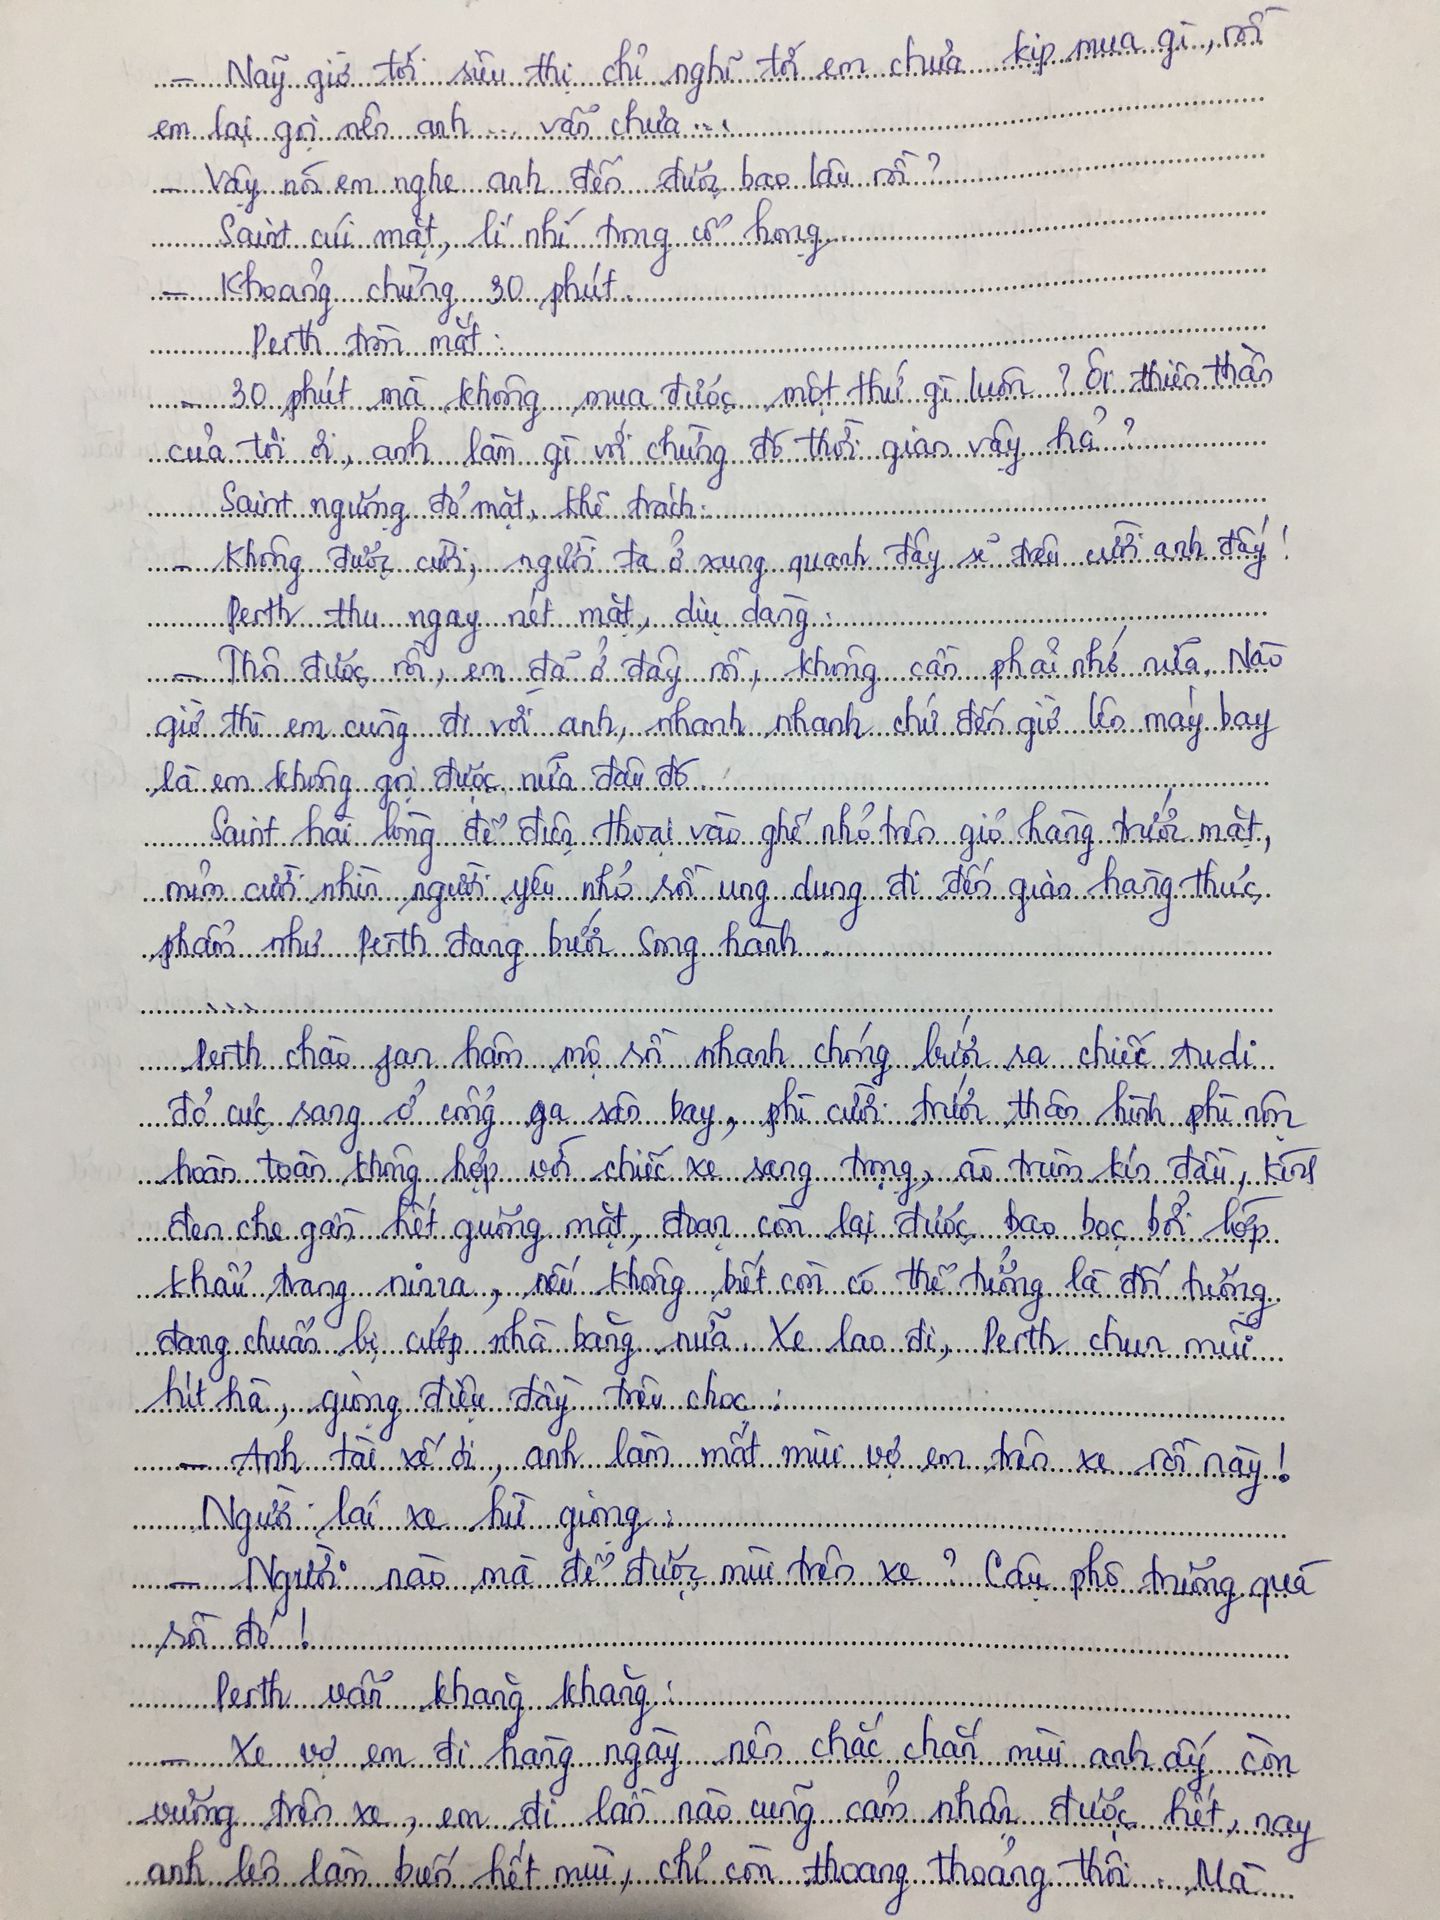 - Nãy giờ tới siêu thị chỉ nghĩ tới em chưa kịp mua gì, rồi
em lại gọi nên anh ... vẫn chưa ...
- Vậy nói em nghe anh đến được bao lâu rồi?
Saint cúi mặt, lí nhí trong cổ họng
- Khoảng chừng 30 phút.
Perth tròn mắt:
- 30 phút mà không mua được một thứ gì luôn? Ôi thiên thần
của tôi ơi, anh làm gì với chừng đó thời gian vậy hả?
Saint ngượng đỏ mặt, khẽ trách:
- Không được cười, người ta ở xung quanh đây sẽ trêu cười anh đấy!
Perth thu ngay nét mặt, dịu dàng:
- Thôi được rồi, em đã ở đây rồi, không cần phải nhớ nữa. Nào
giờ thì em cùng đi với anh, nhanh nhanh chứ đến giờ lên máy bay
là em không gọi được nữa đâu đó.
Saint hài lòng để điện thoại vào ghế nhỏ trên giỏ hàng trước mặt,
mỉm cười nhìn người yêu nhỏ rồi ung dung đi đến quầy hàng thực
phẩm như Perth đang bước song hành.
....
Perth chào fan hâm mộ rồi nhanh chóng bước ra chiếc Audi
đỏ cực sang ở cổng ga sân bay, phì cười trước thân hình phì nộn
hoàn toàn không hợp với chiếc xe sang trọng, áo trùm kín đầu, kính
đen che gần hết gương mặt, đoạn còn lại được bao bọc bởi lớp
khẩu trang ninza, nếu không biết còn có thể tưởng là đối tượng
đang chuẩn bị cướp nhà băng nữa. Xe lao đi, Perth chun mũi
hít hà, giọng điệu đầy trêu chọc:
- Anh tài xế ơi, anh làm mất mùi vợ em trên xe rồi này!
Người lái xe hừ giọng:
- Người nào mà để được mùi trên xe? Cậu phô trương quá
rồi đó!
Perth vẫn khăng khăng:
- Xe vợ em đi hàng ngày nên chắc chắn mùi anh ấy còn
vương trên xe, em đi lần nào cũng cảm nhận được hết, nay
anh lên làm biến hết mùi, chỉ còn thoang thoảng thôi. Mà